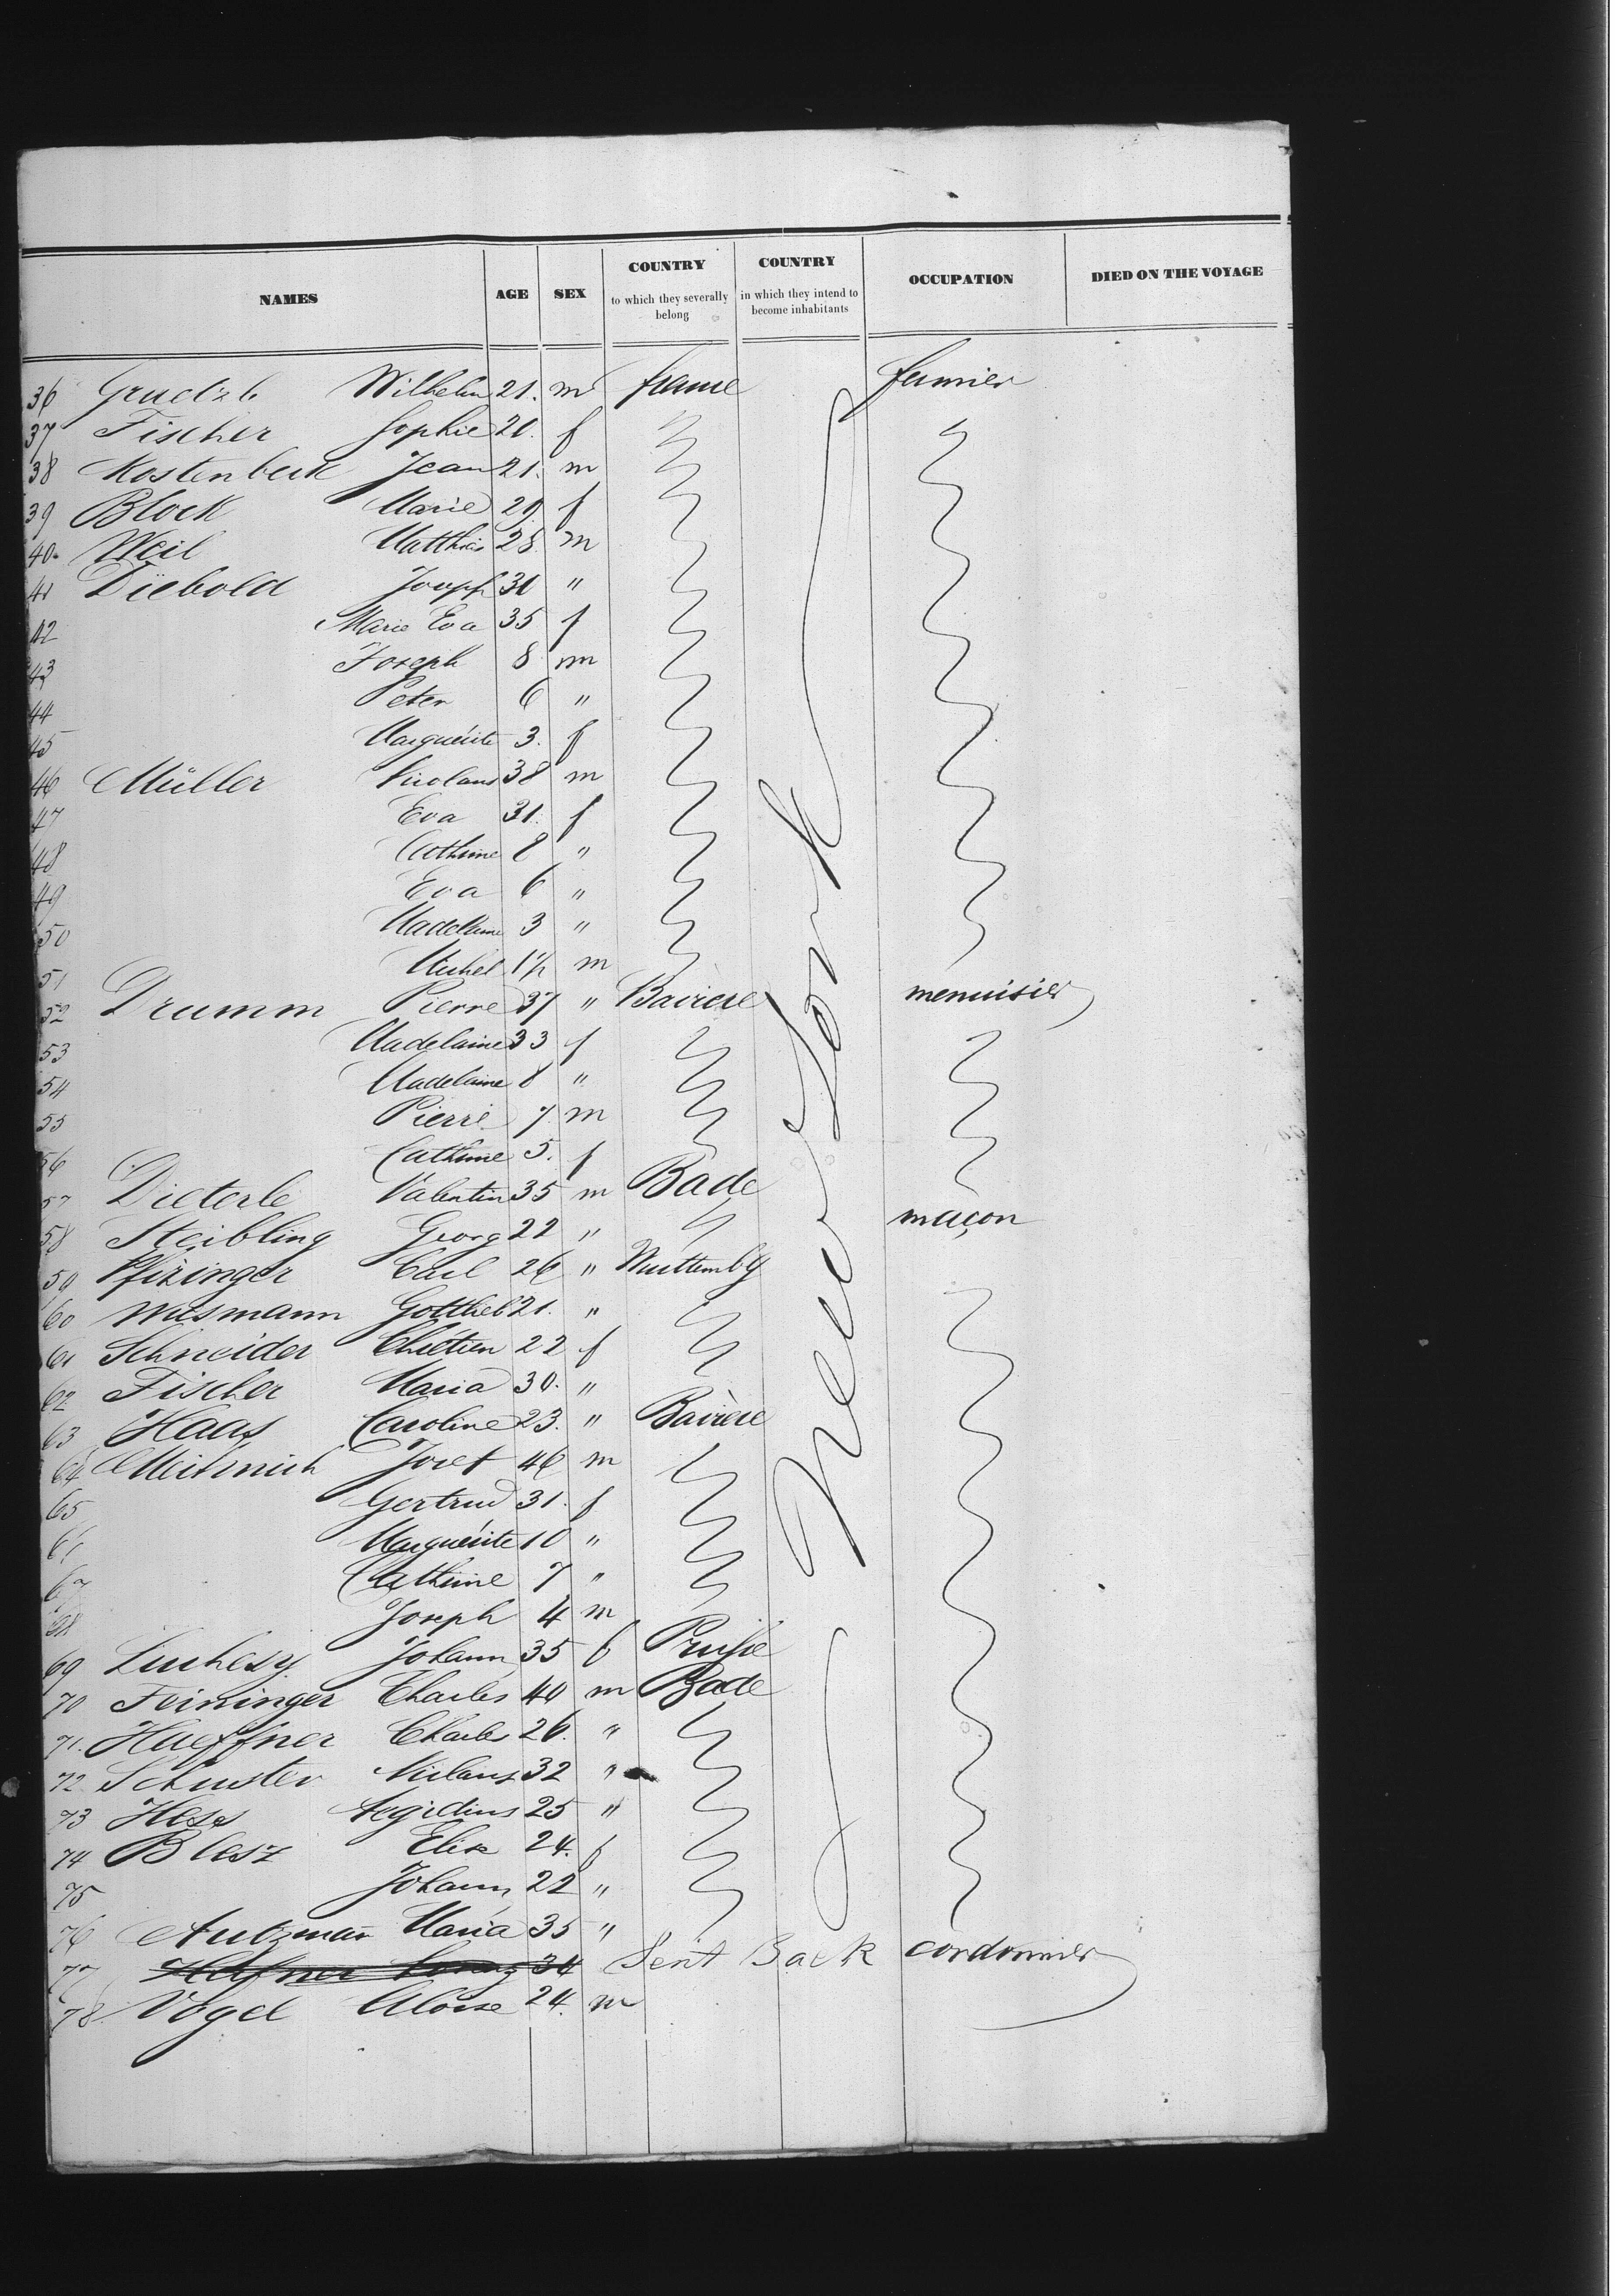 NAMES AGE SEX COUNTRY to which they severally belong COUNTRY in which they intend to become inhabitants OCCUPATION DIED ON THE VOYAGE
36 Wilhelm 21. m france
37 Fischer Sophie 20. f
38 Kostenbeck Jean 21. m
39 Block Marie 29 f
40. Weil Matthias 28. m
41 Diebold Joseph 30 "
42 Marie Eva 35 f
43 Joseph 8 m
44 Peter 6 "
45 Marguérite 3. f
46 Müller Nicolaus 38 m
47 Eva 31. f
48 Cathrine 8 "
49 Eva 6 "
50 Madelaine 3 "
51 Michel 1½ m
52 Drumm Pierre 37 " Bavière menuisier
53 Madelaine 33 f
54 Madelaine 8 "
55 Pierre 7. m
56 Cathrine 5. f
57 Dieterle Valentin 35 m Bade
58 Steibling Georg 22 " maçon
59 Pfizinger Carl 26 " Wurttembg
60 Gottlieb 21. "
61 Schneider Chrétien 22 f
62 Fischer Maria 30. "
63 Haas Caroline 23. " Bavière
64 Josef 46 m
65 Gertrud 31. f
Marguérite 10 "
67 Cathrine 7 "
68 Joseph 4 m
69 Johann 35 f Prusse
70 Feininger Charles 40 m Bade
71. Haeffner Charles 26. "
72 Schuster 32 "
73 Hess Aegidius 25 "
74 Elise 24. f
75 Johann 22 "
76 Maria 35 "
77 Hefner 34 Sent Back cordonnier
78 Vogel Aloise 24. m
New York